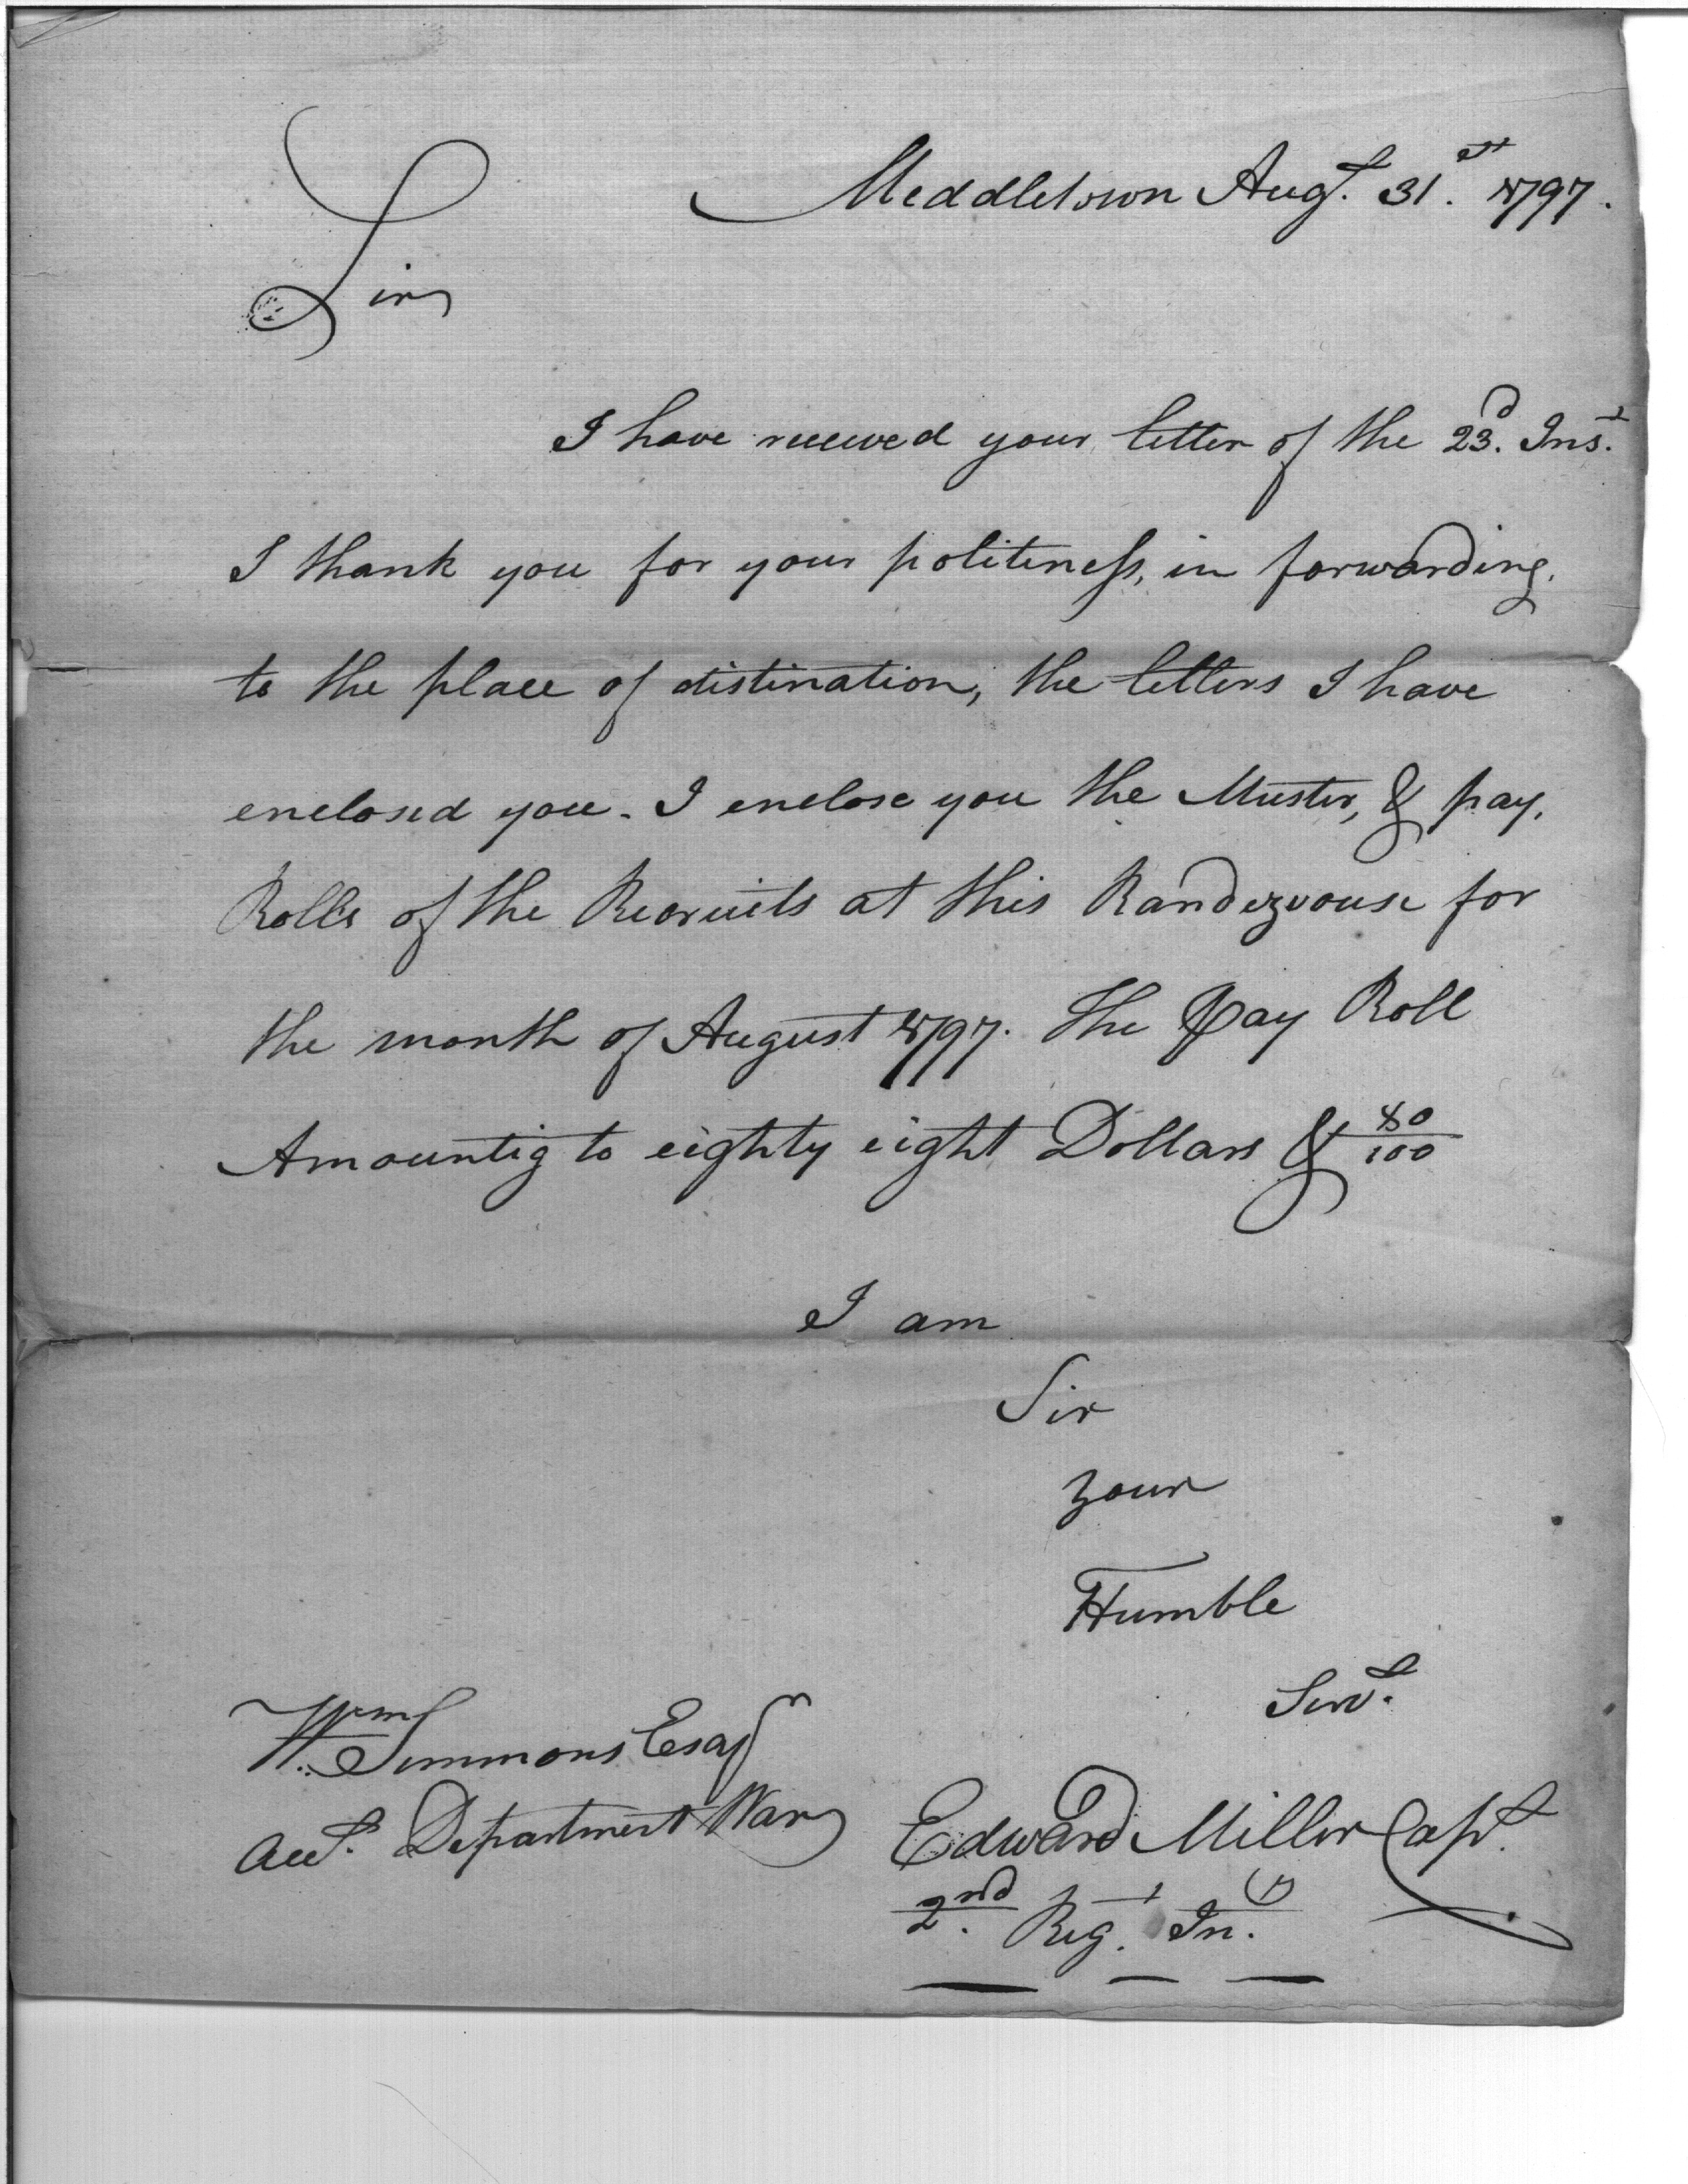 Meddletown Augt. 31st. 1797.
Sir
I have received your letter of the 23d. Inst.
I thank you for your politeness, in forwarding.
to the place of distination, the letters I have
enclosed you. I enclose you the Muster, & pay,
Rolls of the Recruits at this Randezvouse for
the month of August 1797. The Pay Roll
Amountig to eighty eight Dollars & 80/100
I am
Sir
your
Humble
Servt.
Wm. Simmons Esqr
Acct. Department War
Edward Miller Capt.
2nd. Regt. In.ty